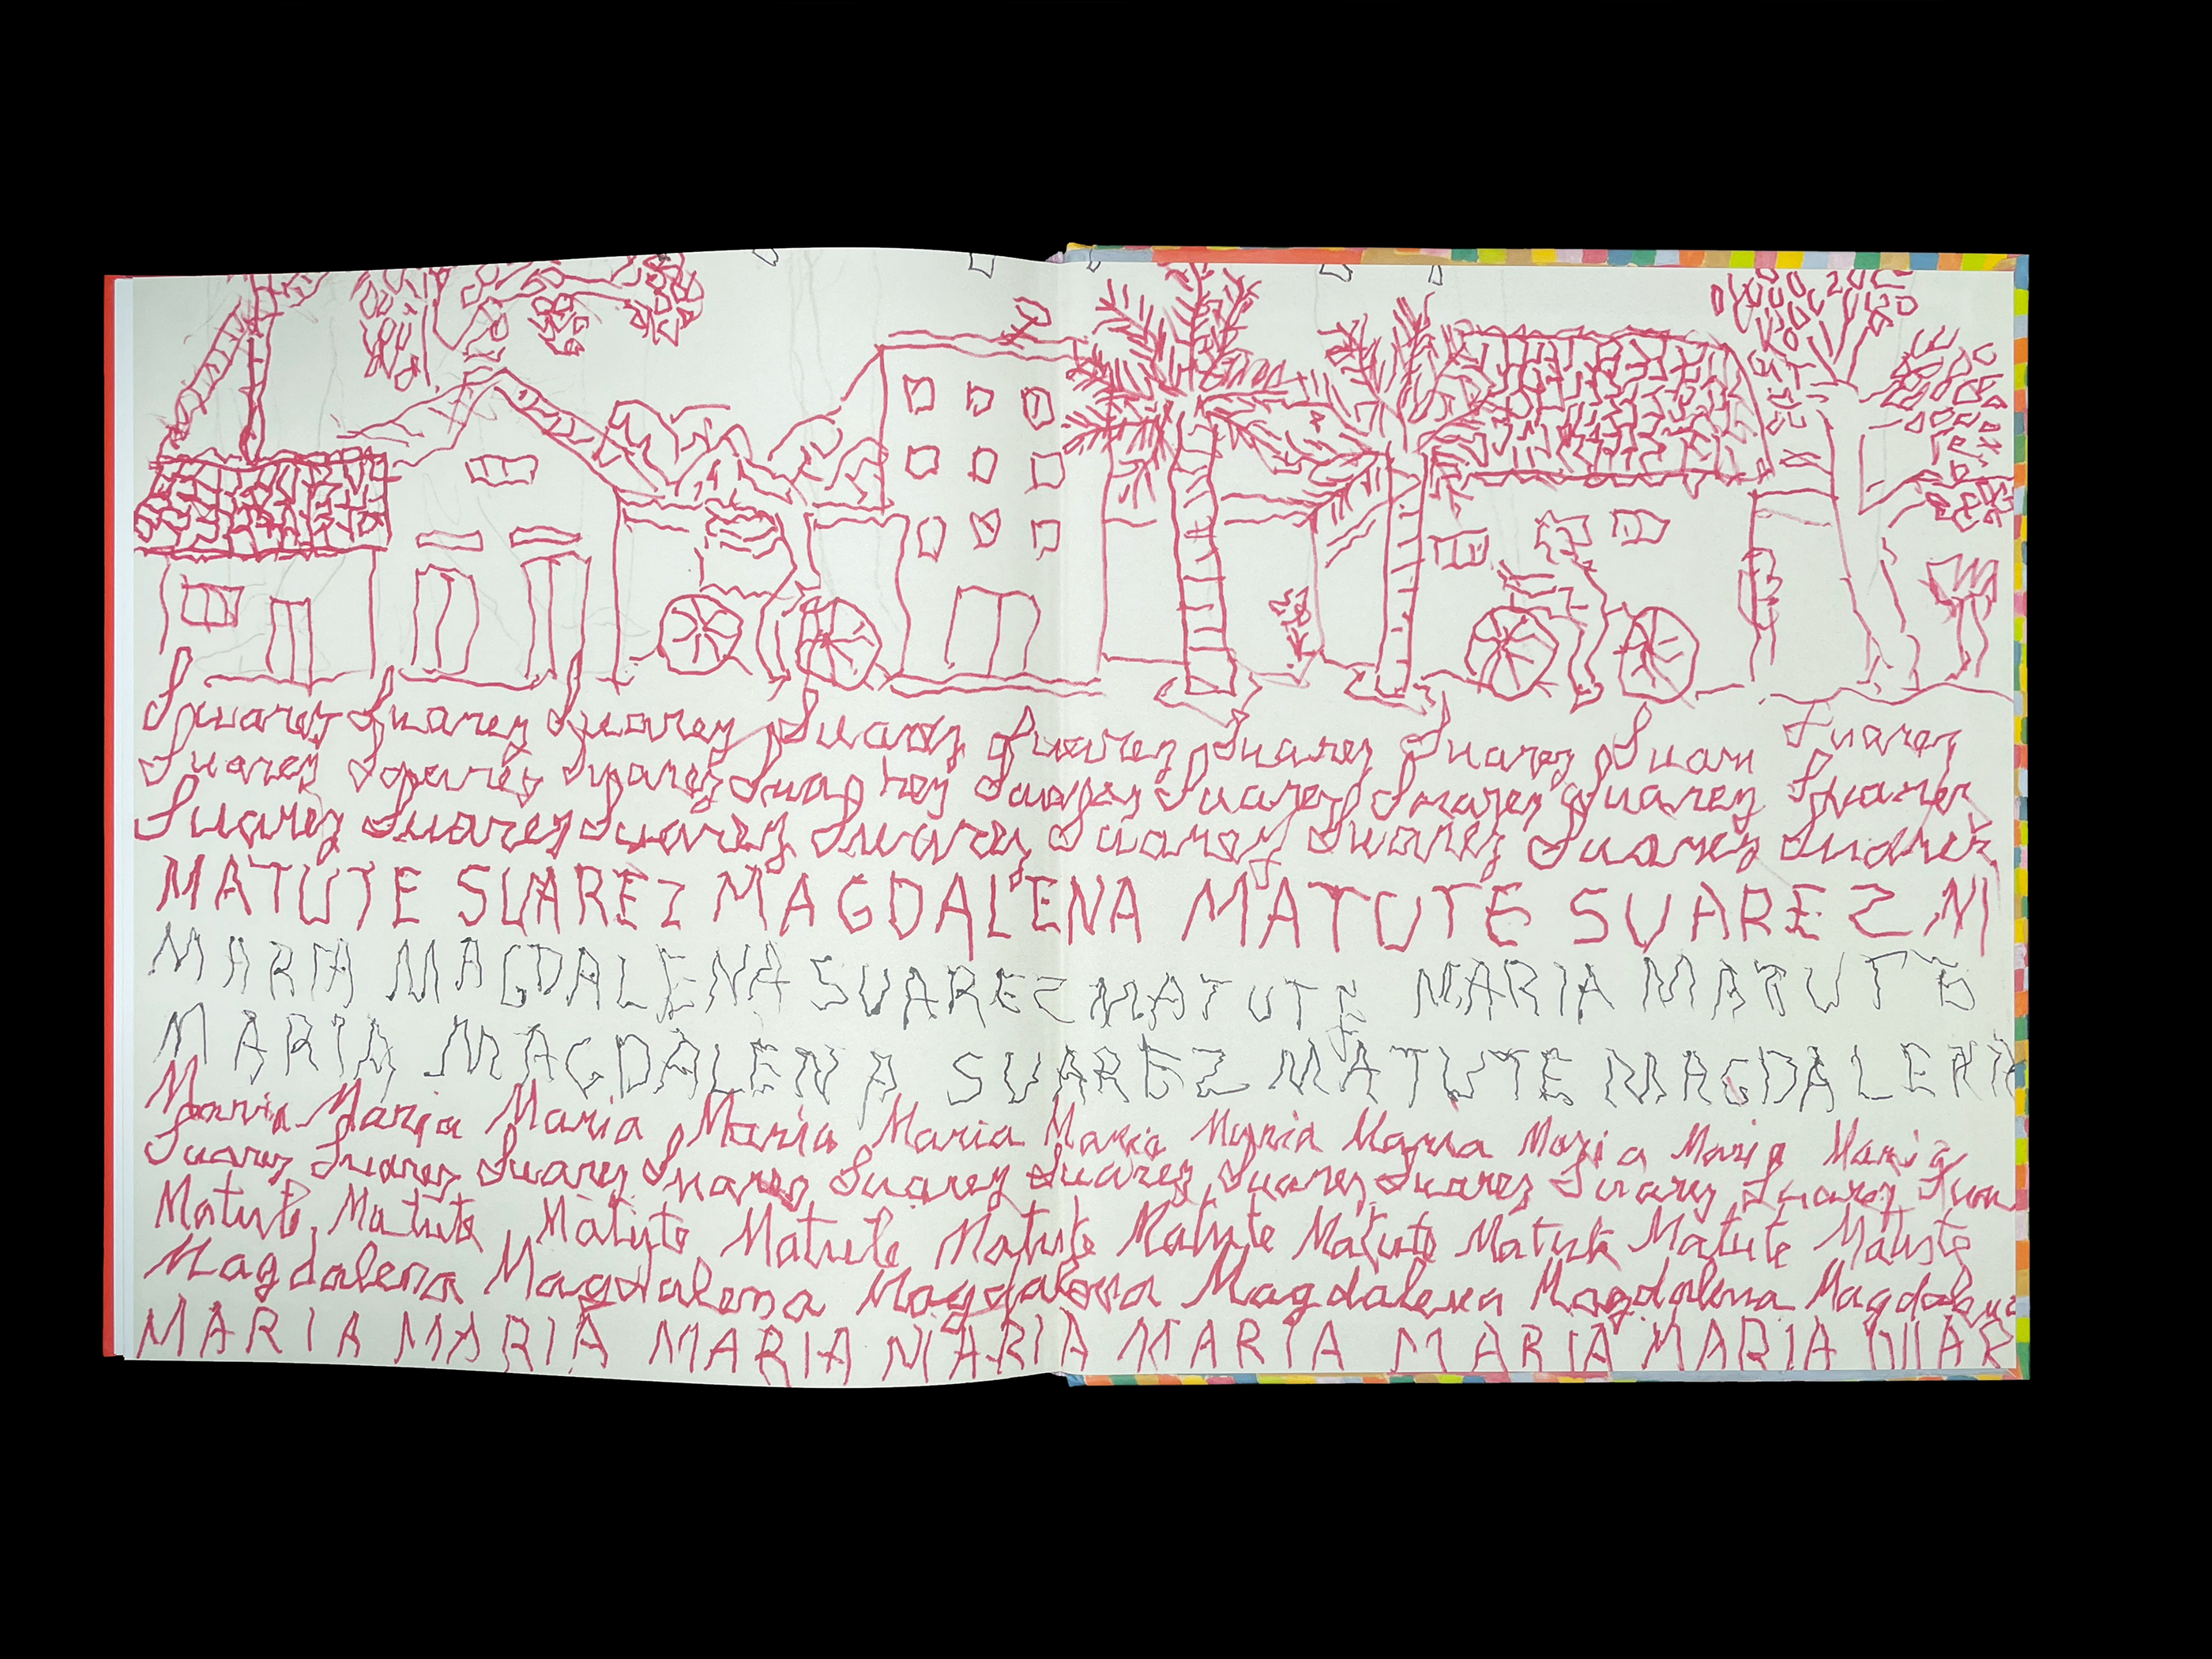 Suarez Suarez Suarez Suarez Suarez Suarez Suarez Suare Suarez
Suarez Suarez Suarez Suarez Suarez Suarez Suarez Suarez
Suarez Suarez Suarez Suarez Suarez Suarez Suarez Suarez
MATUTE SUAREZ MAGDALENA MATUTE SUAREZ M
MARIA MAGDALENA SUAREZ MATUTE MARIA MATUTE
MARIA MAGDALENA SUAREZ MATUTE MAGDALENA
Maria Maria Maria Maria Maria Maria Maria Maria Maria Maria Maria
Suarez Suarez Suarez Suarez Suarez Suarez Suarez Suarez Suarez Suarez Sua
Matute Matute Matute Matute Matute Matute Matute Matute Matute Matute
Magdalena Magdalena Magdalena Magdalena Magdalena Magdalena
MARIA MARIA MARIA MARIA MARIA MARIA MARIA MAR